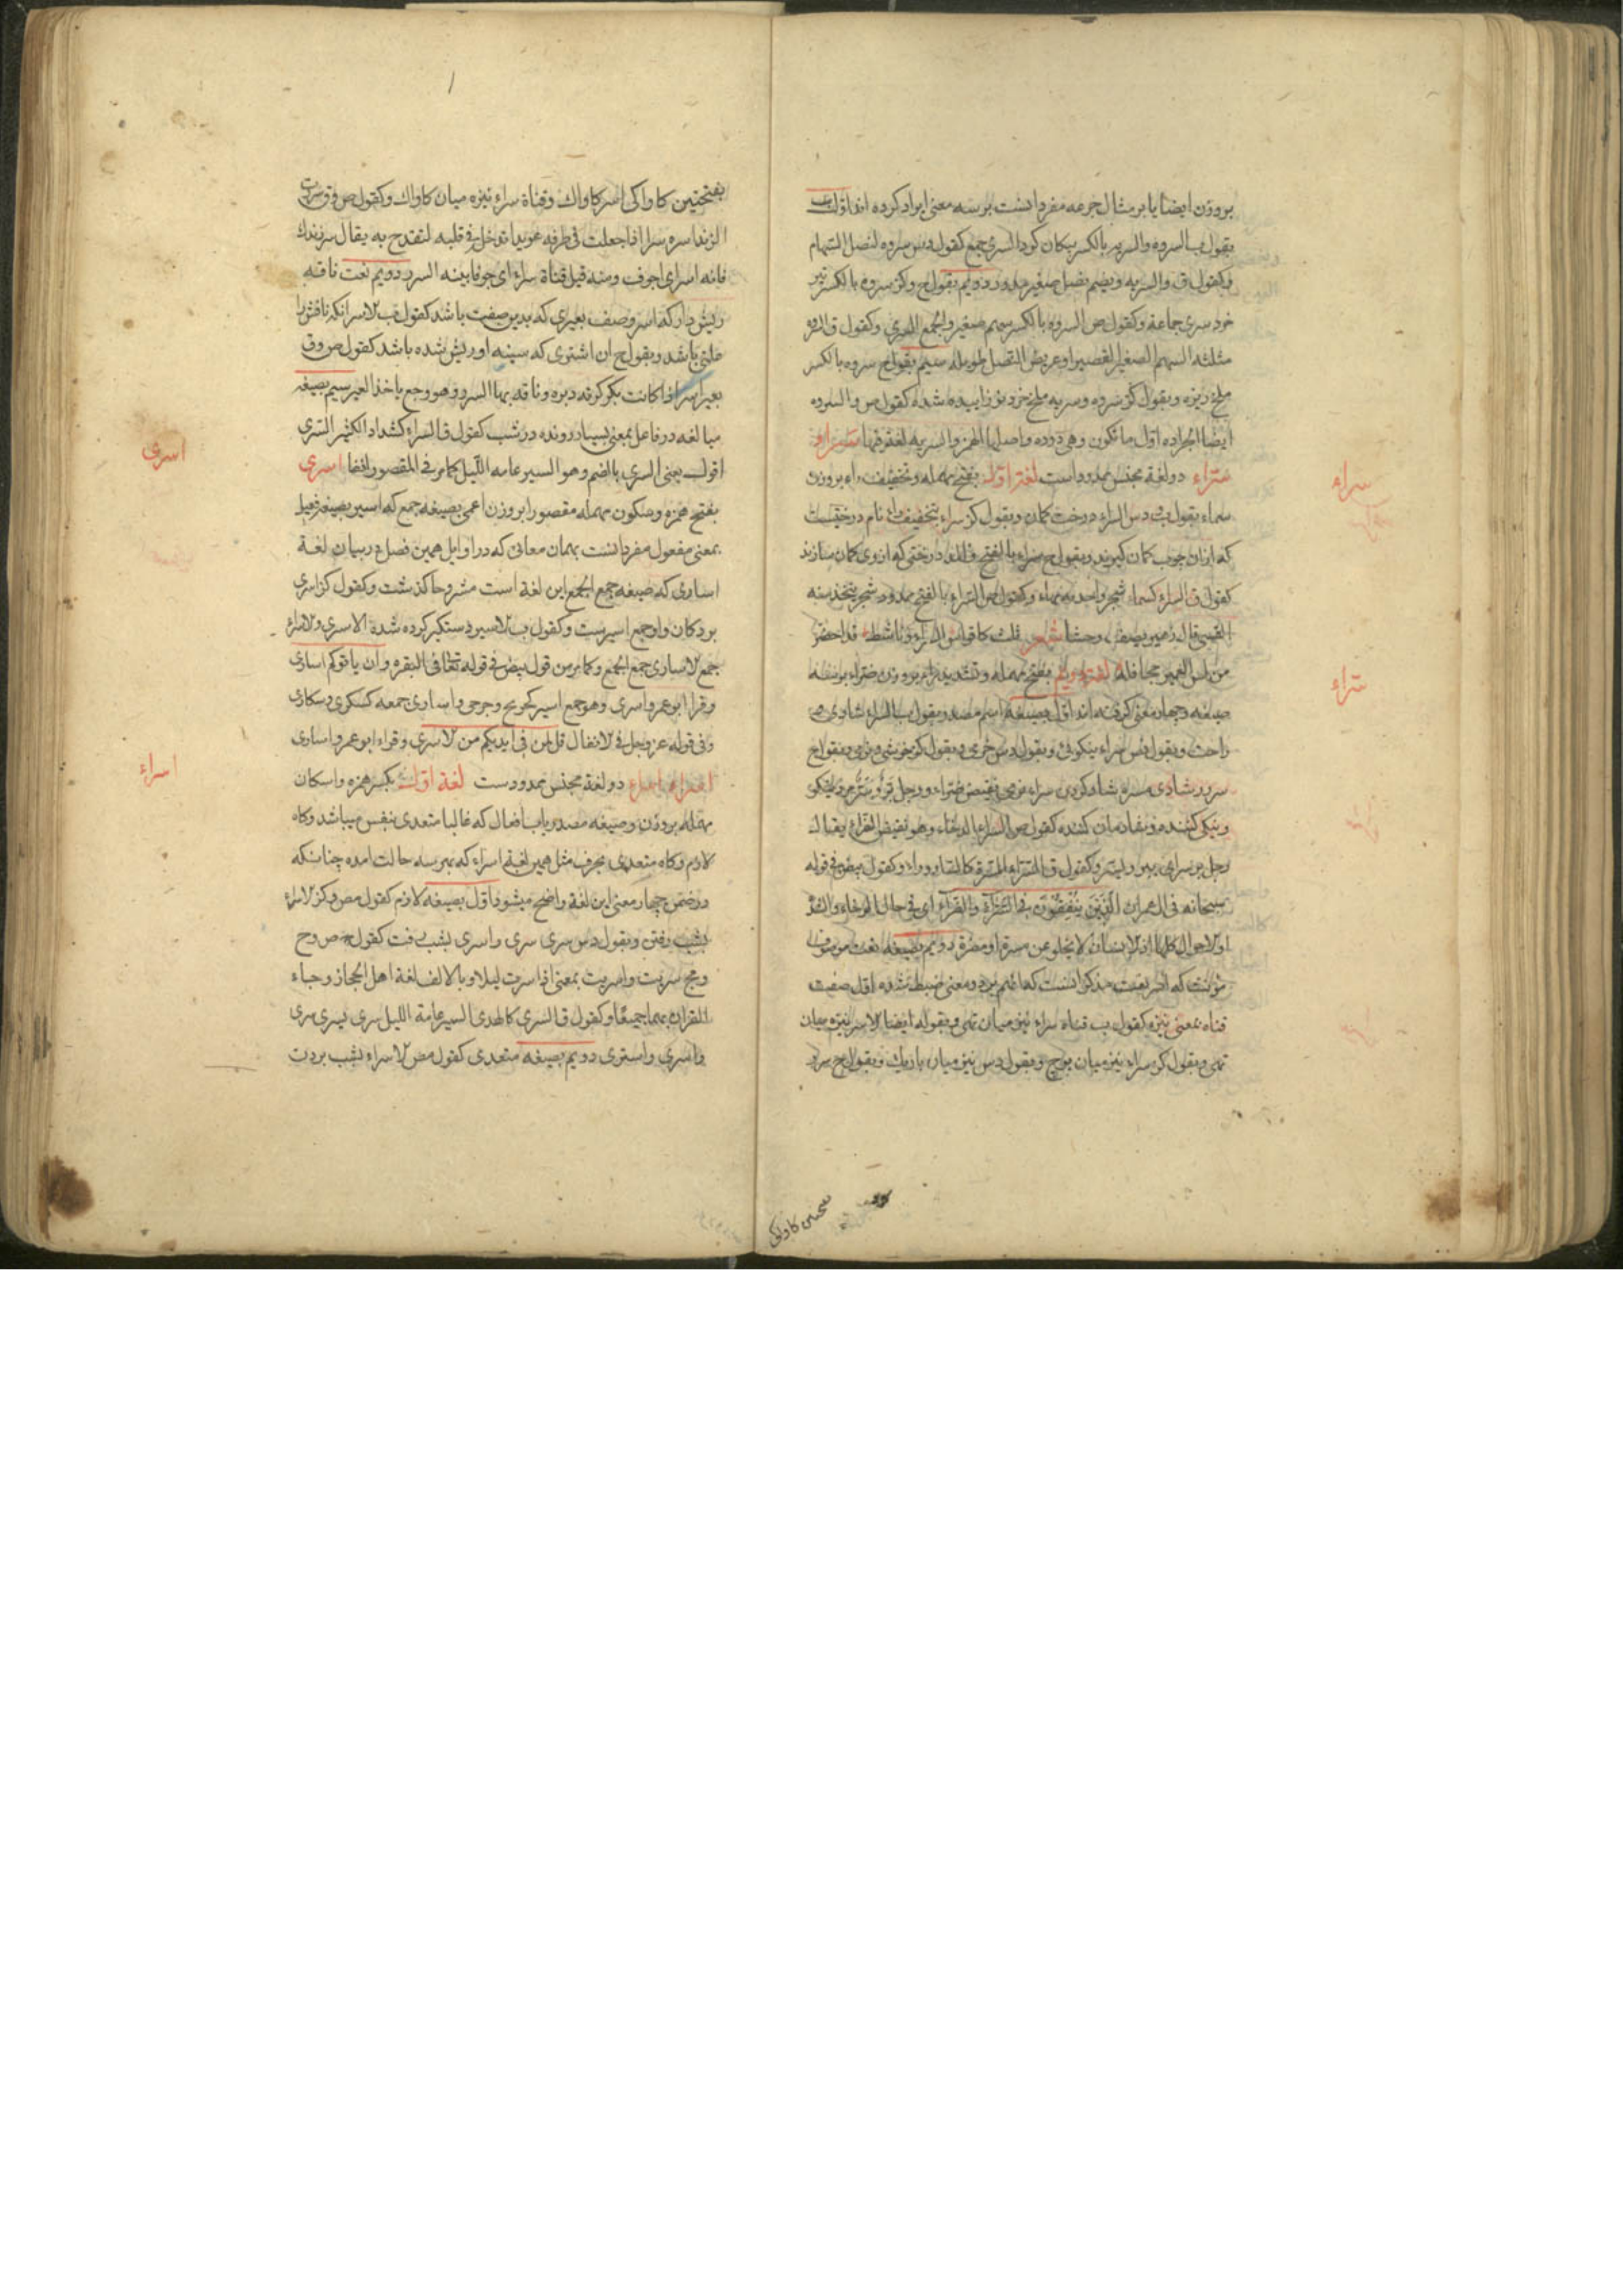 بروزن ایضا یا بر مثال جرعه مفرد انست بر سه معنی ایراد کرده اند اول
بقول ب السروه والسریه بالکسر پیکان کرد السری جمع کقول دس سروه لنصل السهام
وکقول ق والسریه ویضم نصل صغیر مدور دویم بقول ح وکز سروه بالکسر تیر
خود سری جماعة وکقول ص السروه بالکسر سهم صغیر والجمع السری وکقول ق السروه
مثلثه السهم الصغیر القصیر او عریض النصل طویله سیم بقول ح سروه بالکسر
ملخ ریزه وبقول کز سروه وسریه ملخ خرد نو زاییده شده کقول ص والسروه
ایضا الجراده اول ما تکون وهی دوده واصلها الهمز والسریه لغة فیها سراء
سراء دو لغة مجنس ممدود است لغة اول بفتح مهمله وتخفیف راء بروزن
سماء بقول ب دس السراء درخت کمان وبقول کز سراء بتخفیف راء نام درختیست
که ازان چوب کمان کیرند وبقول ح سراء بالفتح والمد درختی که از وی کمان سازند
کقول ق السراء کسماء شجر واحدته بهاء وکقول ص السراء بالفتح ممدود شجر یتخذ منه
القسی قال زهیر یصف وحشا شعر ثلث کاقواس السراء وناشط قد اخضر
من لس الغمیر جحافله لغة دویم بفتح مهمله وتشدید راء بروزن ضراء بر سه
صیغه وچهار معنی کرفته اند اول بصیغه اسم مصدر بقول ب السراء شادی
راحت وبقول دس سراء نیکوئی وبقول دس خرمی وبقول کز خوشی وبقول ح
سرور شادی مسره شاد کردن سراء نقیض ضراء ورجل بر سر مردی نیکی
ونیکی کننده وشادمان کننده کقول ص السراء الرخاء وهو نقیض الضراء یقال
رجل بر سر ای یبر ویسر وکقول ق السراء المسرة وکقول بیض فی قوله
سبحانه فی ال عمران الذین ینفقون فی السراء والضراء ای فی حال الرخاء والشدة
او الاحوال کلها اذ الانسان لا یخلو عن مسرة او مضرة دویم بصیغه نعت
مؤنث که اسر نعت مذکر انست که دو معنی ضبط شده اول صفت
قناه بمعنی نیزه کقول ب قناه سراء نیزه میان تهی وبقوله ایضا الاسر نیزه میان
تهی وبقول کز سراء نیزه میان پوچ وبقول دس نیزه میان باریک وبقول ح سرر
سراء
سراء
بفتحتین کاواکی اسر کاواک وقناة سراء نیزه میان کاواک وکقول ص وق سررت
الزند اسره سرا اذا جعلت فی طرفه عویدا تدخله فی قلبه لتقدح به یقال سر زندک
فانه اسر ای اجوف ومنه قیل قناة سراء ای جوفا بینه السرر دویم نعت ناقه
ریش دار که اسر وصف بعیری که بدین صفت باشد کقول ب الاسر انکه نافش را
علتی باشد وبقول ح ان اشتری که سینه او ریش شده باشد کقول ص وق
بعیر اسر اذا کانت بکرکرته دبره وناقه بها السرر وهو وجع یاخذ البعیر سیم بصیغه
مبالغه در فاعل بمعنی بسیار رونده در شب کقول ق السراء کشداد الکثیر السری
اقول یعنی السری بالضم وهو السیر عامه اللیل کما مر فی المقصور انفا اسری
بفتح همزه وسکون مهمله مقصورا بروزن اعمی بصیغه جمع که اسیر بصیغه فعیل
بمعنی مفعول مفرد انست بهمان معانی که در اوایل همین فصل در بیان لغة
اساری که صیغه جمع الجمع این لغة است مشروحا کذشت وکقول کز اسری
بردکان واو جمع اسیرست وکقول ب الاسیر دستکیر کرده شده الاسری والاسراء
جمع الاساری جمع الجمع وکما مر من قول بیض فی قوله تعالی فی البقره وان یاتوکم اساری
وقرا ابو عمرو اسری وهو جمع اسیر کجریح وجرحی واساری جمعه کسکری وسکاری
وفی قوله عز وجل فی الانفال قل لمن فی ایدیکم من الاسری وقراء ابو عمرو اساری
اسراء اسراء دو لغة مجنس ممدودست لغة اول بکسر همزه واسکان
مهمله بروزن وصیغه مصدر باب افعال که غالبا متعدی بنفس میباشد وکاه
لازم وکاه متعدی بحرف مثل همین لغة اسراء که بهر سه حالت امده چنانکه
در ضمن چهار معنی این لغة واضح میشود اول بصیغه لازم کقول مص وکز الاسراء
بشب رفتن وبقول دس سری سری واسری بشب رفت کقول ص وح
ومج سریت واسریت بمعنی اذا سرت لیلا وبالالف لغة اهل الحجاز وجاء
القران بهما جمیعا وکقول ق السری کالهدی السیر عامة اللیل سری یسری سری
واسری واستری دویم بصیغه متعدی کقول مص الاسراء بشب بردن
اسری
اسراء
بفتحتین کاواکی